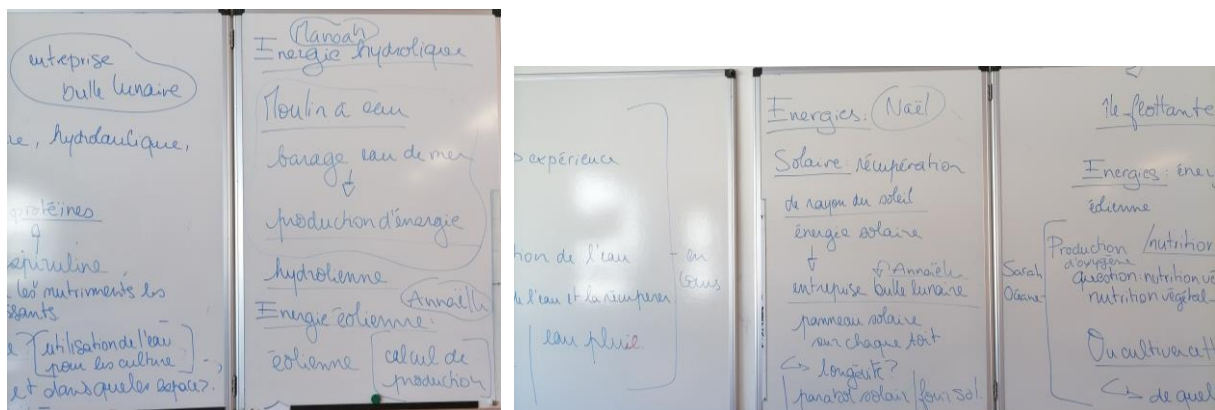 entreprise
bulle lunaire
hydraulique,
protéines
spiruline
les nutriments les
utilisation de l'eau
pour les culture
et dans queles espace?
Manoah
Energie hydrolique
Moulin à eau
barage eau de mer
production d'énergie
hydrolienne
Annaëlle
Energie éolienne:
éolienne
calcul de
production
expérience
de l'eau
en
de l'eau et la récuperer
eau pluie
Energies: Naël
Solaire: récupération
de rayon du soleil
énergie solaire
Annaëlle
entreprise bulle lunaire
panneau solaire
sur chaque toit
longévité?
parabol solair / four sol.
île flottante
Energies: éner
éolienne
Production / nutrition
d'oxygène
Sarah
question nutrition vé
Océane
nutrition végétal
Ou cultiver cett
de quel